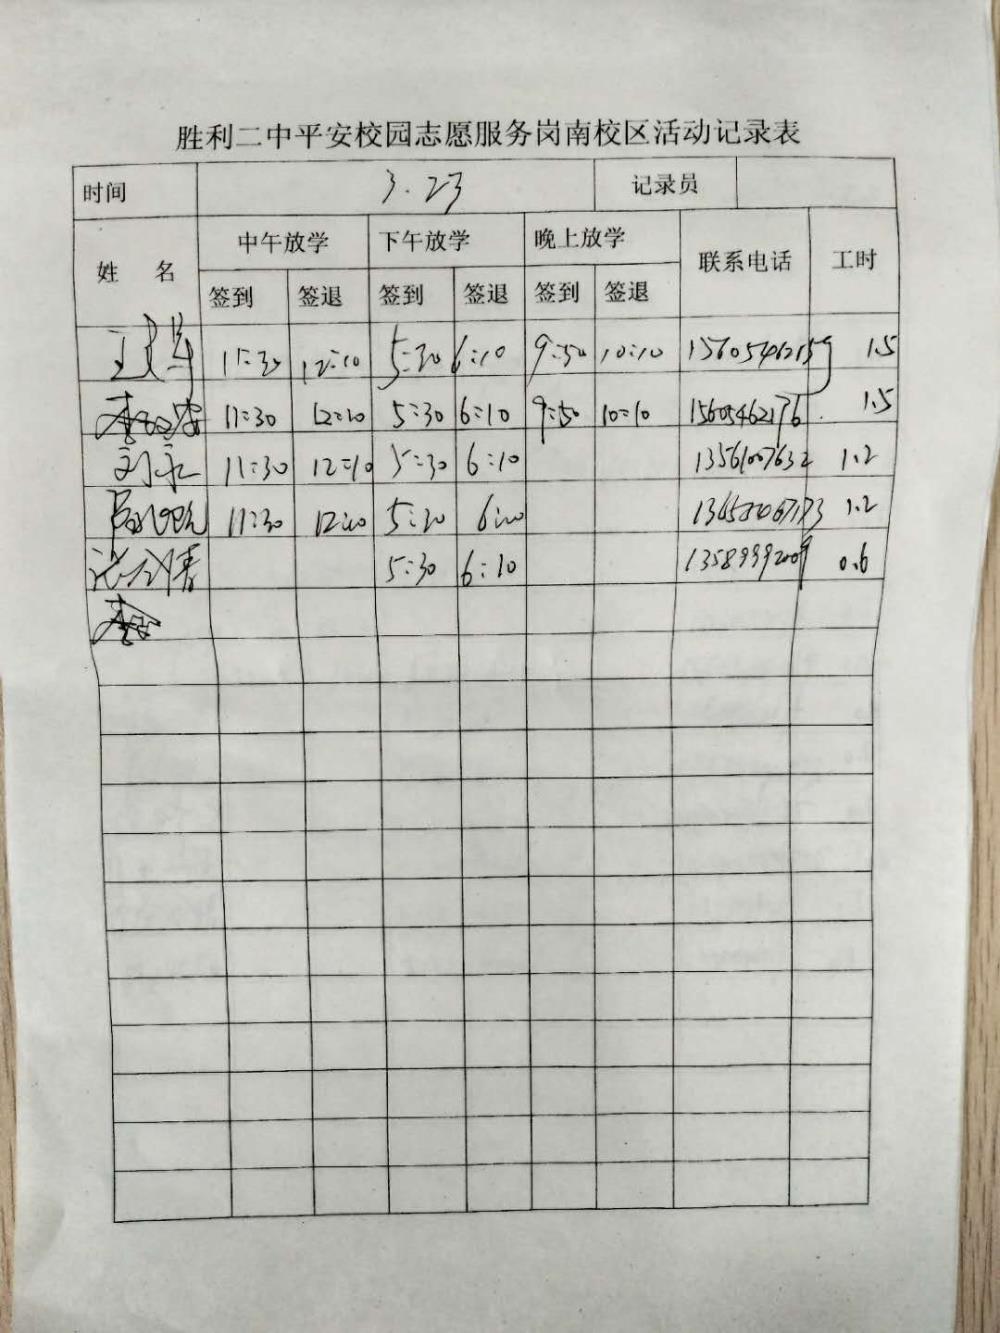 胜利二中平安校园志愿服务岗南校区活动记录表
时间 3.23 记录员
姓 名 中午放学 下午放学 晚上放学 联系电话 工时
签到 签退 签到 签退 签到 签退
11:30 12:10 5:30 6:10 9:50 10:10 1.5
11:30 12:10 5:30 6:10 9:50 10:10 15605462176 1.5
刘永 11:30 12:10 5:30 6:10 13561007632 1.2
11:30 12:10 5:30 6:10 1.2
5:30 6:10 13589992009 0.6